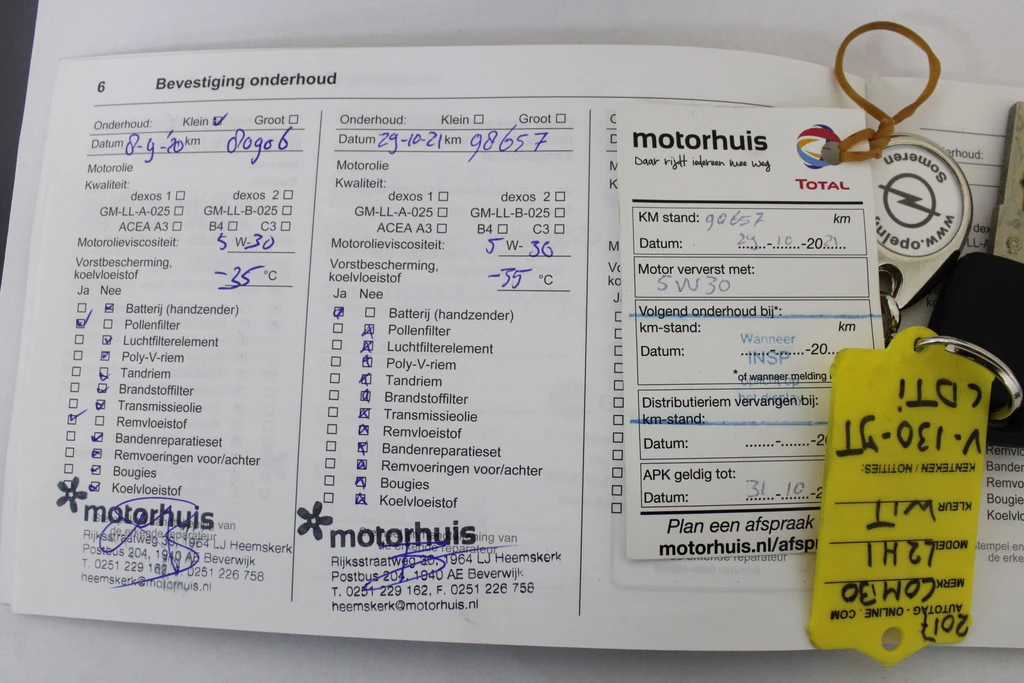 6 Bevestiging onderhoud
Onderhoud: Klein Groot
Datum 8-9-20 km 80906
Motorolie
Kwaliteit:
dexos 1 dexos 2
GM-LL-A-025 GM-LL-B-025
ACEA A3 B4 C3
Motorolieviscositeit: 5 W-30
Vorstbescherming,
koelvloeistof -35 °C
Ja Nee
Batterij (handzender)
Pollenfilter
Luchtfilterelement
Poly-V-riem
Tandriem
Brandstoffilter
Transmissieolie
Remvloeistof
Bandenreparatieset
Remvoeringen voor/achter
Bougies
Koelvloeistof
motorhuis
Rijksstraatweg 1964 LJ Heemskerk
Postbus 204, 1940 AE Beverwijk
T. 0251 229 162, F. 0251 226 758
heemskerk@motorhuis.nl
Onderhoud: Klein Groot
Datum 29-10-21 km 98657
Motorolie
Kwaliteit:
dexos 1 dexos 2
GM-LL-A-025 GM-LL-B-025
ACEA A3 B4 C3
Motorolieviscositeit: 5 W-30
Vorstbescherming,
koelvloeistof -35 °C
Ja Nee
Batterij (handzender)
Pollenfilter
Luchtfilterelement
Poly-V-riem
Tandriem
Brandstoffilter
Transmissieolie
Remvloeistof
Bandenreparatieset
Remvoeringen voor/achter
Bougies
Koelvloeistof
motorhuis
Rijksstraatweg 1964 LJ Heemskerk
Postbus 204, 1940 AE Beverwijk
T. 0251 229 162, F. 0251 226 758
heemskerk@motorhuis.nl
motorhuis
Daar rijdt iedereen mee weg
TOTAL
KM stand: 98657 km
Datum: 29-10-2021
Motor ververst met:
5W30
Volgend onderhoud bij*:
km-stand: km
Wanneer
Datum: -20
INSP
*of wanneer melding
Distributieriem vervangen bij:
km-stand:
Datum: -20
APK geldig tot:
Datum: 31-10-2
Plan een afspraak
motorhuis.nl/afspr
Someren
www.opelnl
V-130-JT
CDTi
KENTEKEN / NOTITIES:
KLEUR WIT
MODEL L2H1
MERK COMBO
AUTOTAG-ONLINE.COM
2017